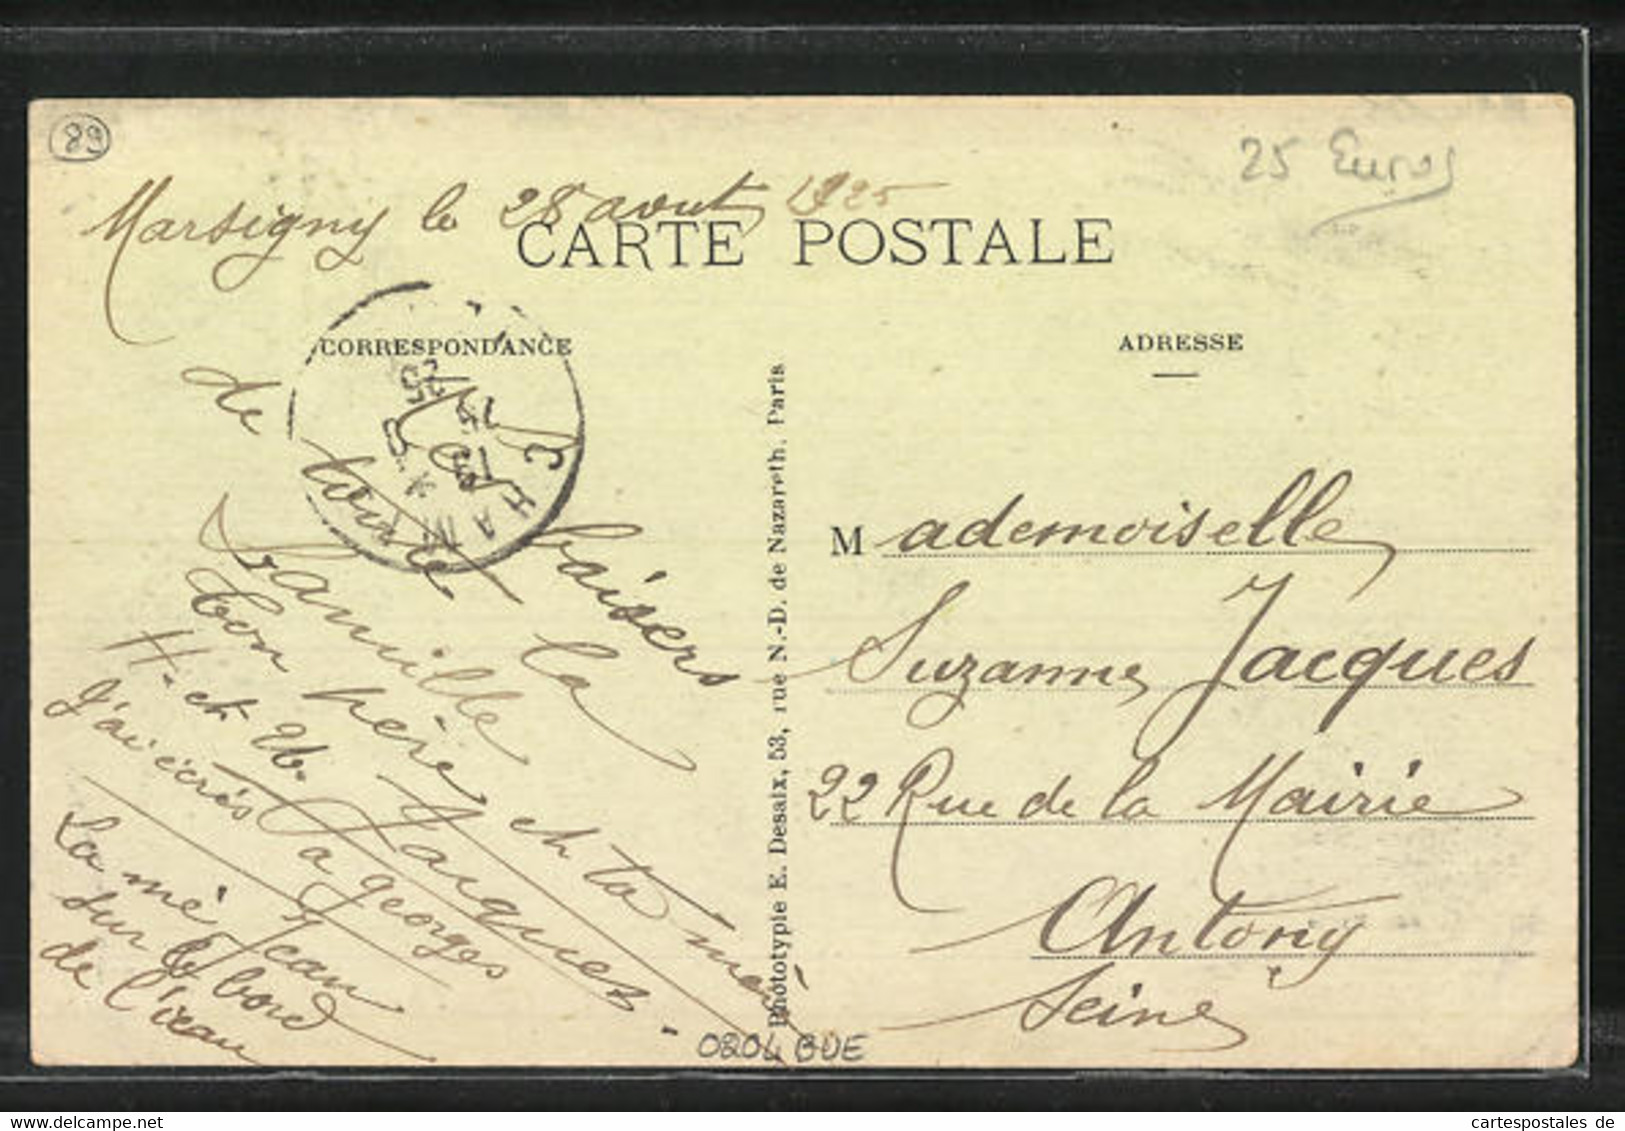 89
25 Euros
Marsigny le 28 aout 1925
CARTE POSTALE
CORRESPONDANCE
ADRESSE
baisers
de toute la
famille
ton père et ta mère
H. et B. Jacques
J'ai écris a georges
La mé Jean
sur le bord
de l'eau
Phototypie E. Desaix, 53, rue N.-D. de Nazareth. Paris
Mademoiselle
Suzanne Jacques
22 Rue de la Mairie
Antony
Seine
0204 BUE
www.cartespostales.de